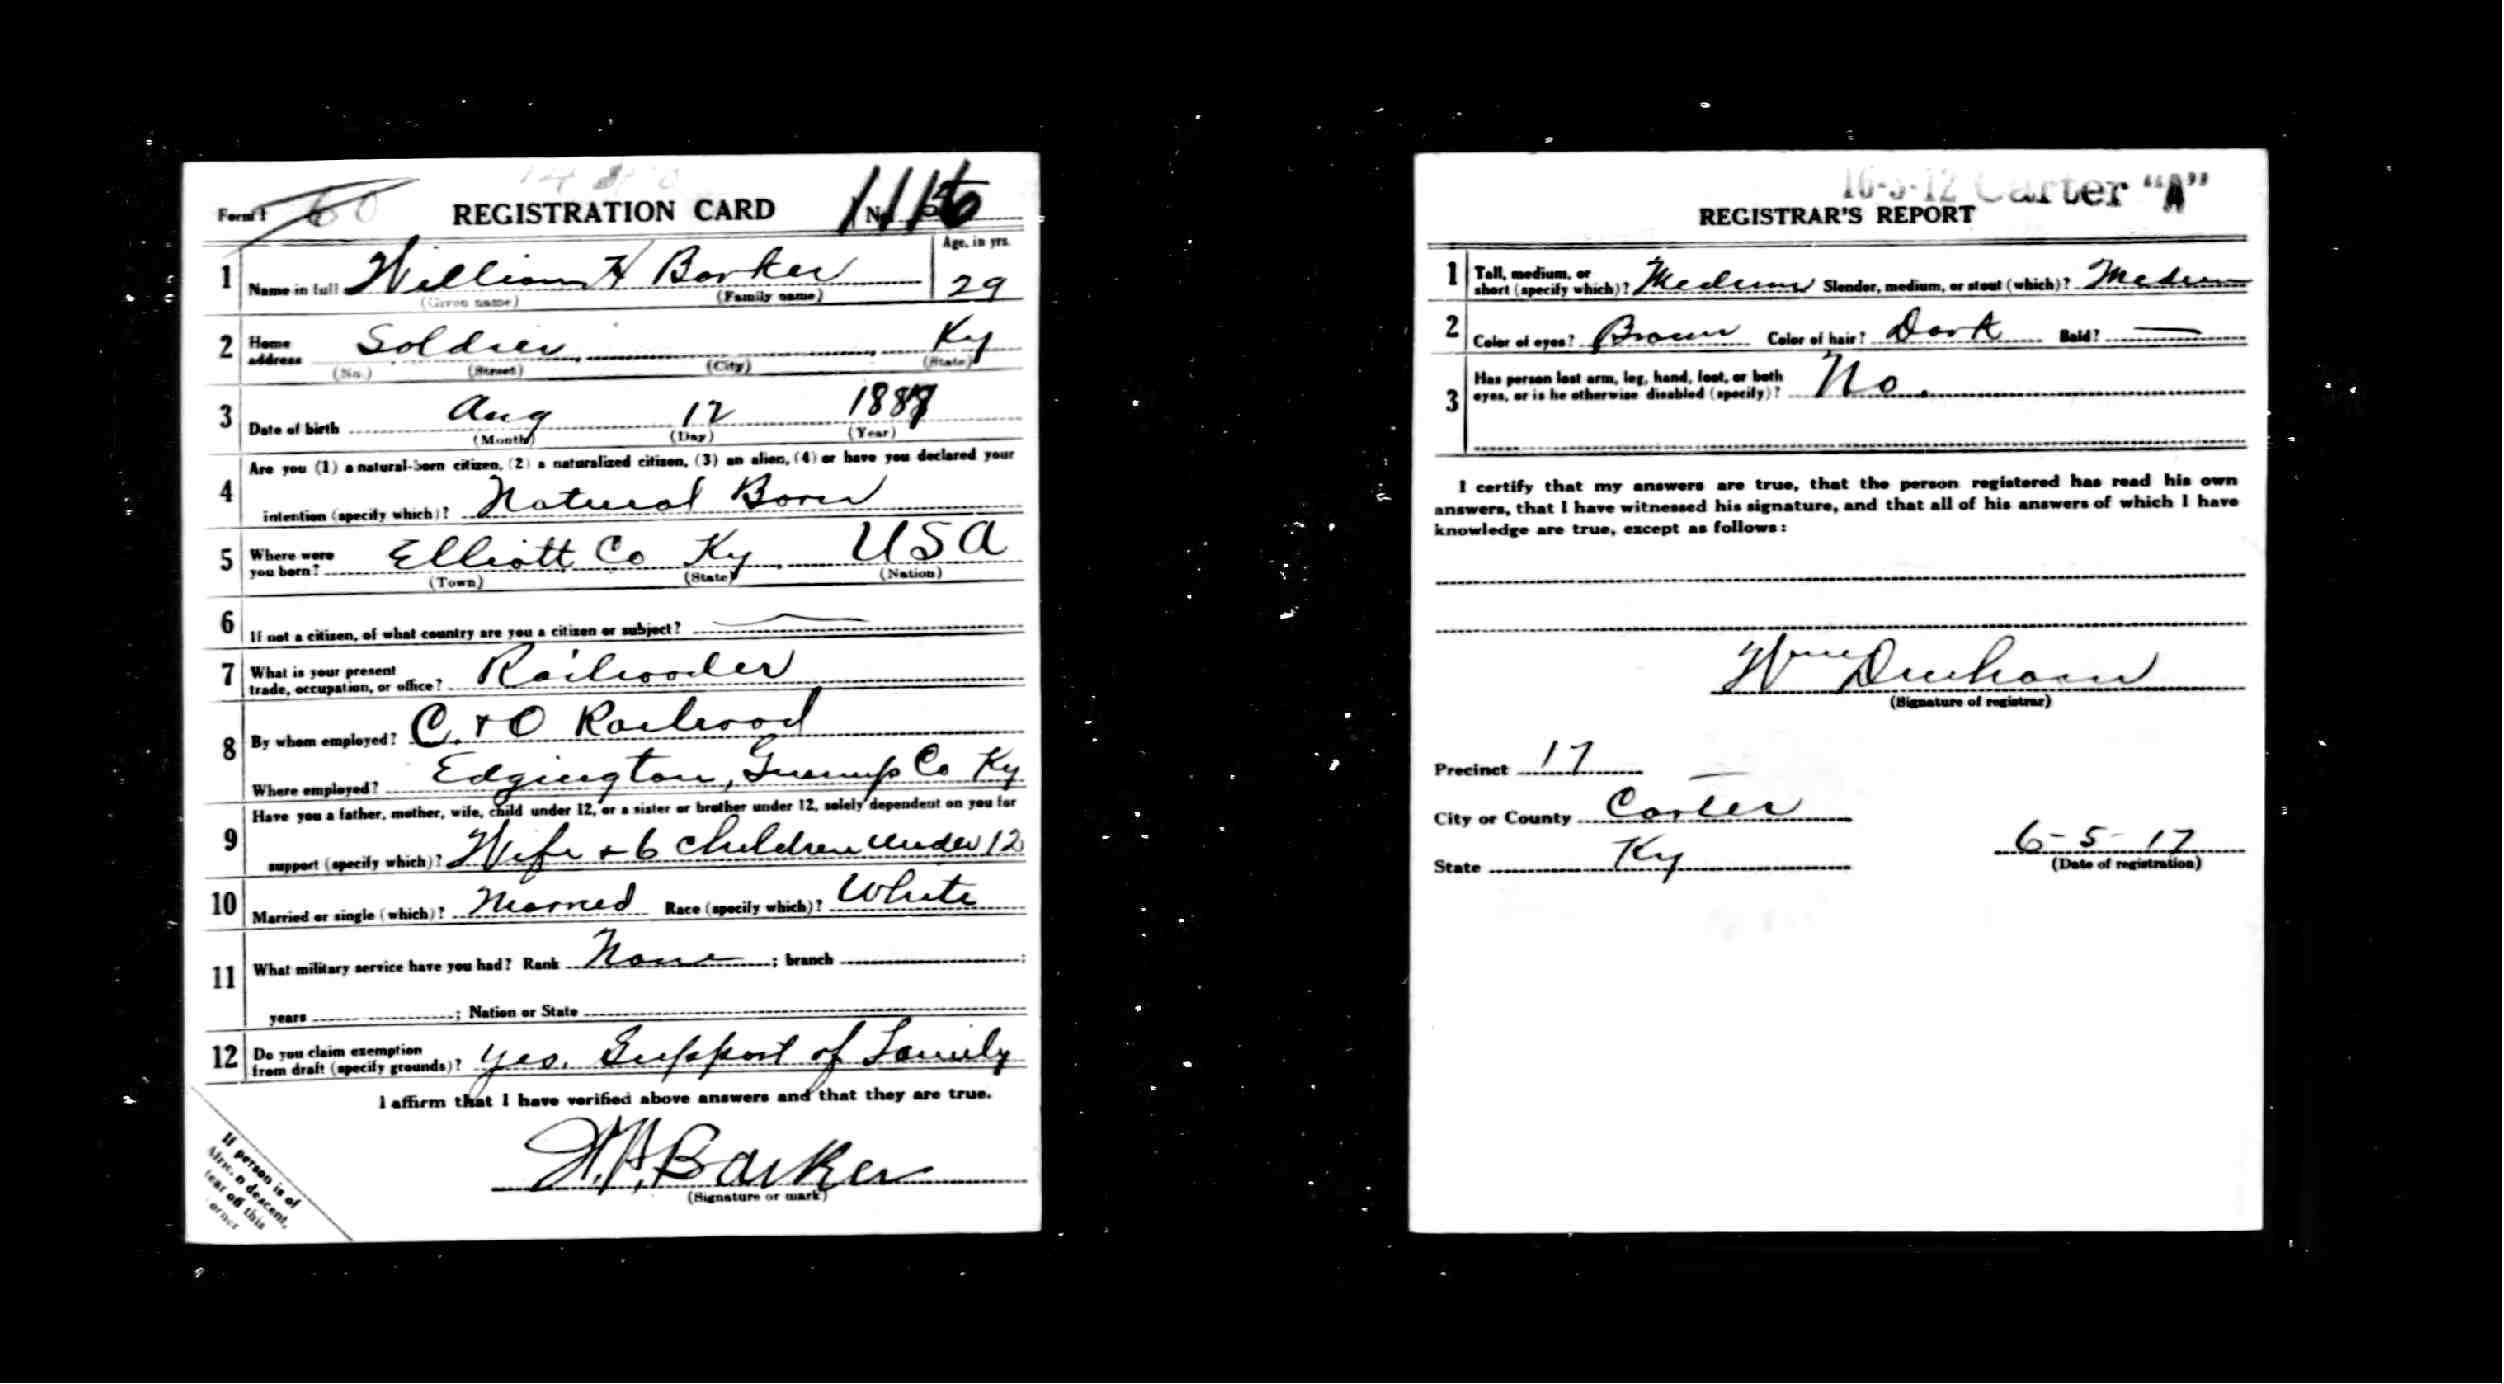 Form 1 REGISTRATION CARD No.
1 Name in full William H Barker Age, in yrs. 29
(Given name) (Family name)
2 Home address Soldier, Ky
(No.) (Street) (City) (State)
3 Date of birth Aug 12
(Month) (Day) (Year)
4 Are you (1) a natural-born citizen, (2) a naturalized citizen, (3) an alien, (4) or have you declared your
intention (specify which)? Natural Born
5 Where were you born? Elliott Co Ky, USA
(Town) (State) (Nation)
6 If not a citizen, of what country are you a citizen or subject? —
7 What is your present trade, occupation, or office? Railroader
8 By whom employed? C. & O Railroad
Where employed? Edgington, Co Ky
9 Have you a father, mother, wife, child under 12, or a sister or brother under 12, solely dependent on you for
support (specify which)? Wife & 6 children under 12
10 Married or single (which)? Married Race (specify which)? White
11 What military service have you had? Rank None ; branch ;
years ; Nation or State
12 Do you claim exemption from draft (specify grounds)? Yes. Support of Family
I affirm that I have verified above answers and that they are true.
W.H. Barker
(Signature or mark)
If person is of
African descent,
tear off this
corner
16-5-12 Carter "A"
REGISTRAR'S REPORT
1 Tall, medium, or short (specify which)? Medium Slender, medium, or stout (which)? Medium
2 Color of eyes? Brown Color of hair? Dark Bald? —
3 Has person lost arm, leg, hand, foot, or both eyes, or is he otherwise disabled (specify)? No.
I certify that my answers are true, that the person registered has read his own
answers, that I have witnessed his signature, and that all of his answers of which I have
knowledge are true, except as follows:
Wm Dunham
(Signature of registrar)
Precinct 17
City or County Carter
State Ky 6-5-17
(Date of registration)